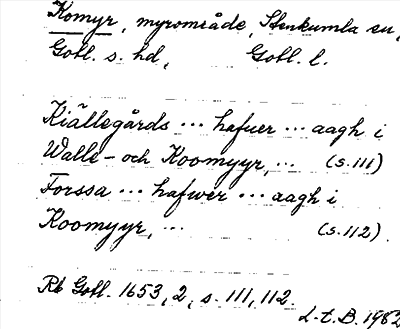 Komyr, myrområde, Stenkumla sn,
Gotl. s. hd, Gotl. l.
Kiällegårds ... hafuer ... aagh i
Walle- och Koomyyr, ... (s. 111)
Forssa ... hafwer ... aagh i
Koomyyr, ... (s. 112).
Rb Gotl. 1653, 2, s. 111, 112.
L.t.B. 1982